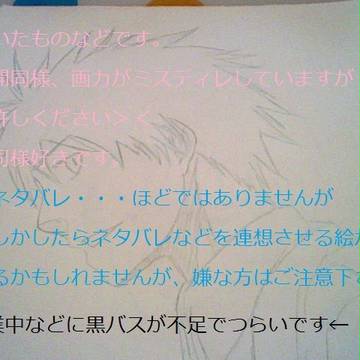 いたものなどです。
開同様、画力がミスディレしていますが
許しください＞＜
同様好きです
ネタバレ・・・ほどではありませんが
しかしたらネタバレなどを連想させる絵が
るかもしれませんが、嫌な方はご注意下さ
業中などに黒バスが不足でつらいです←